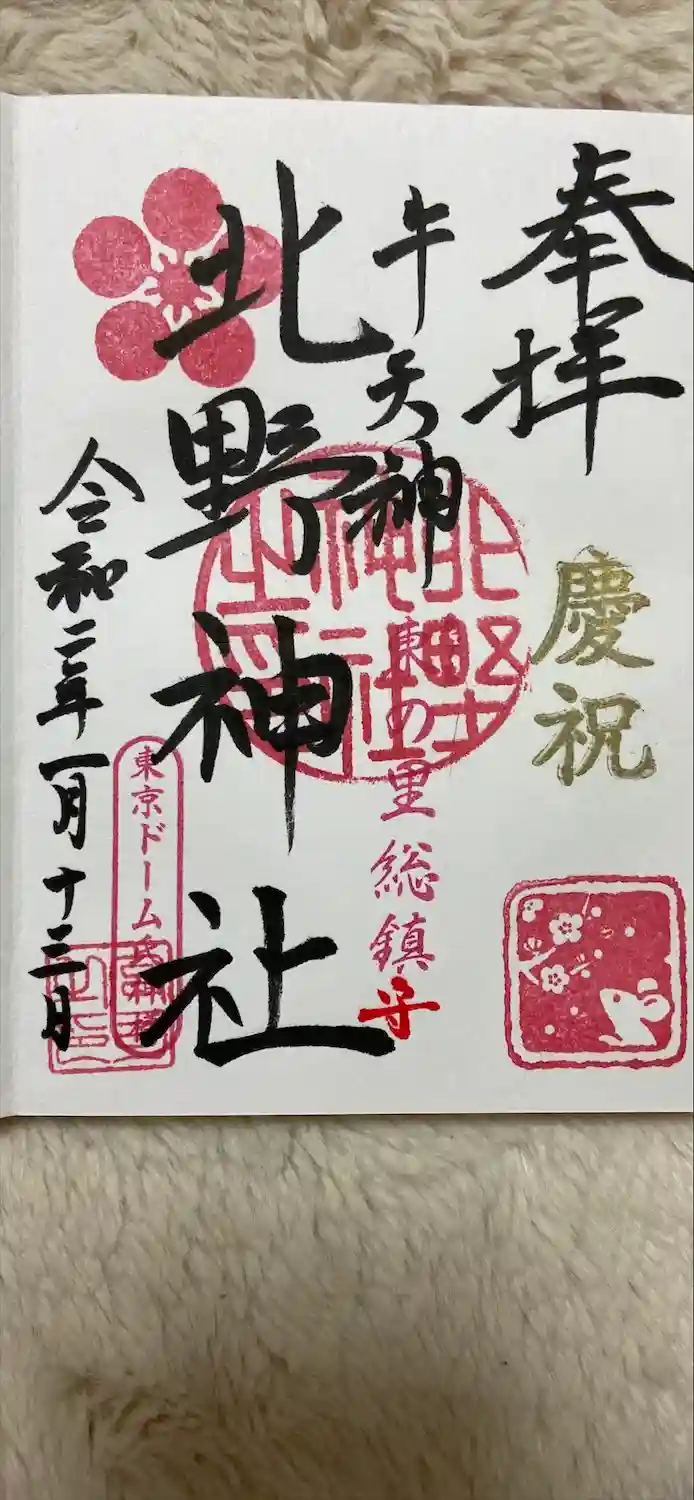 奉拝
慶祝
牛天神
東の里総鎮守
北野神社
北野
神社
之印
東京ドーム氏神様
令和二年一月十三日